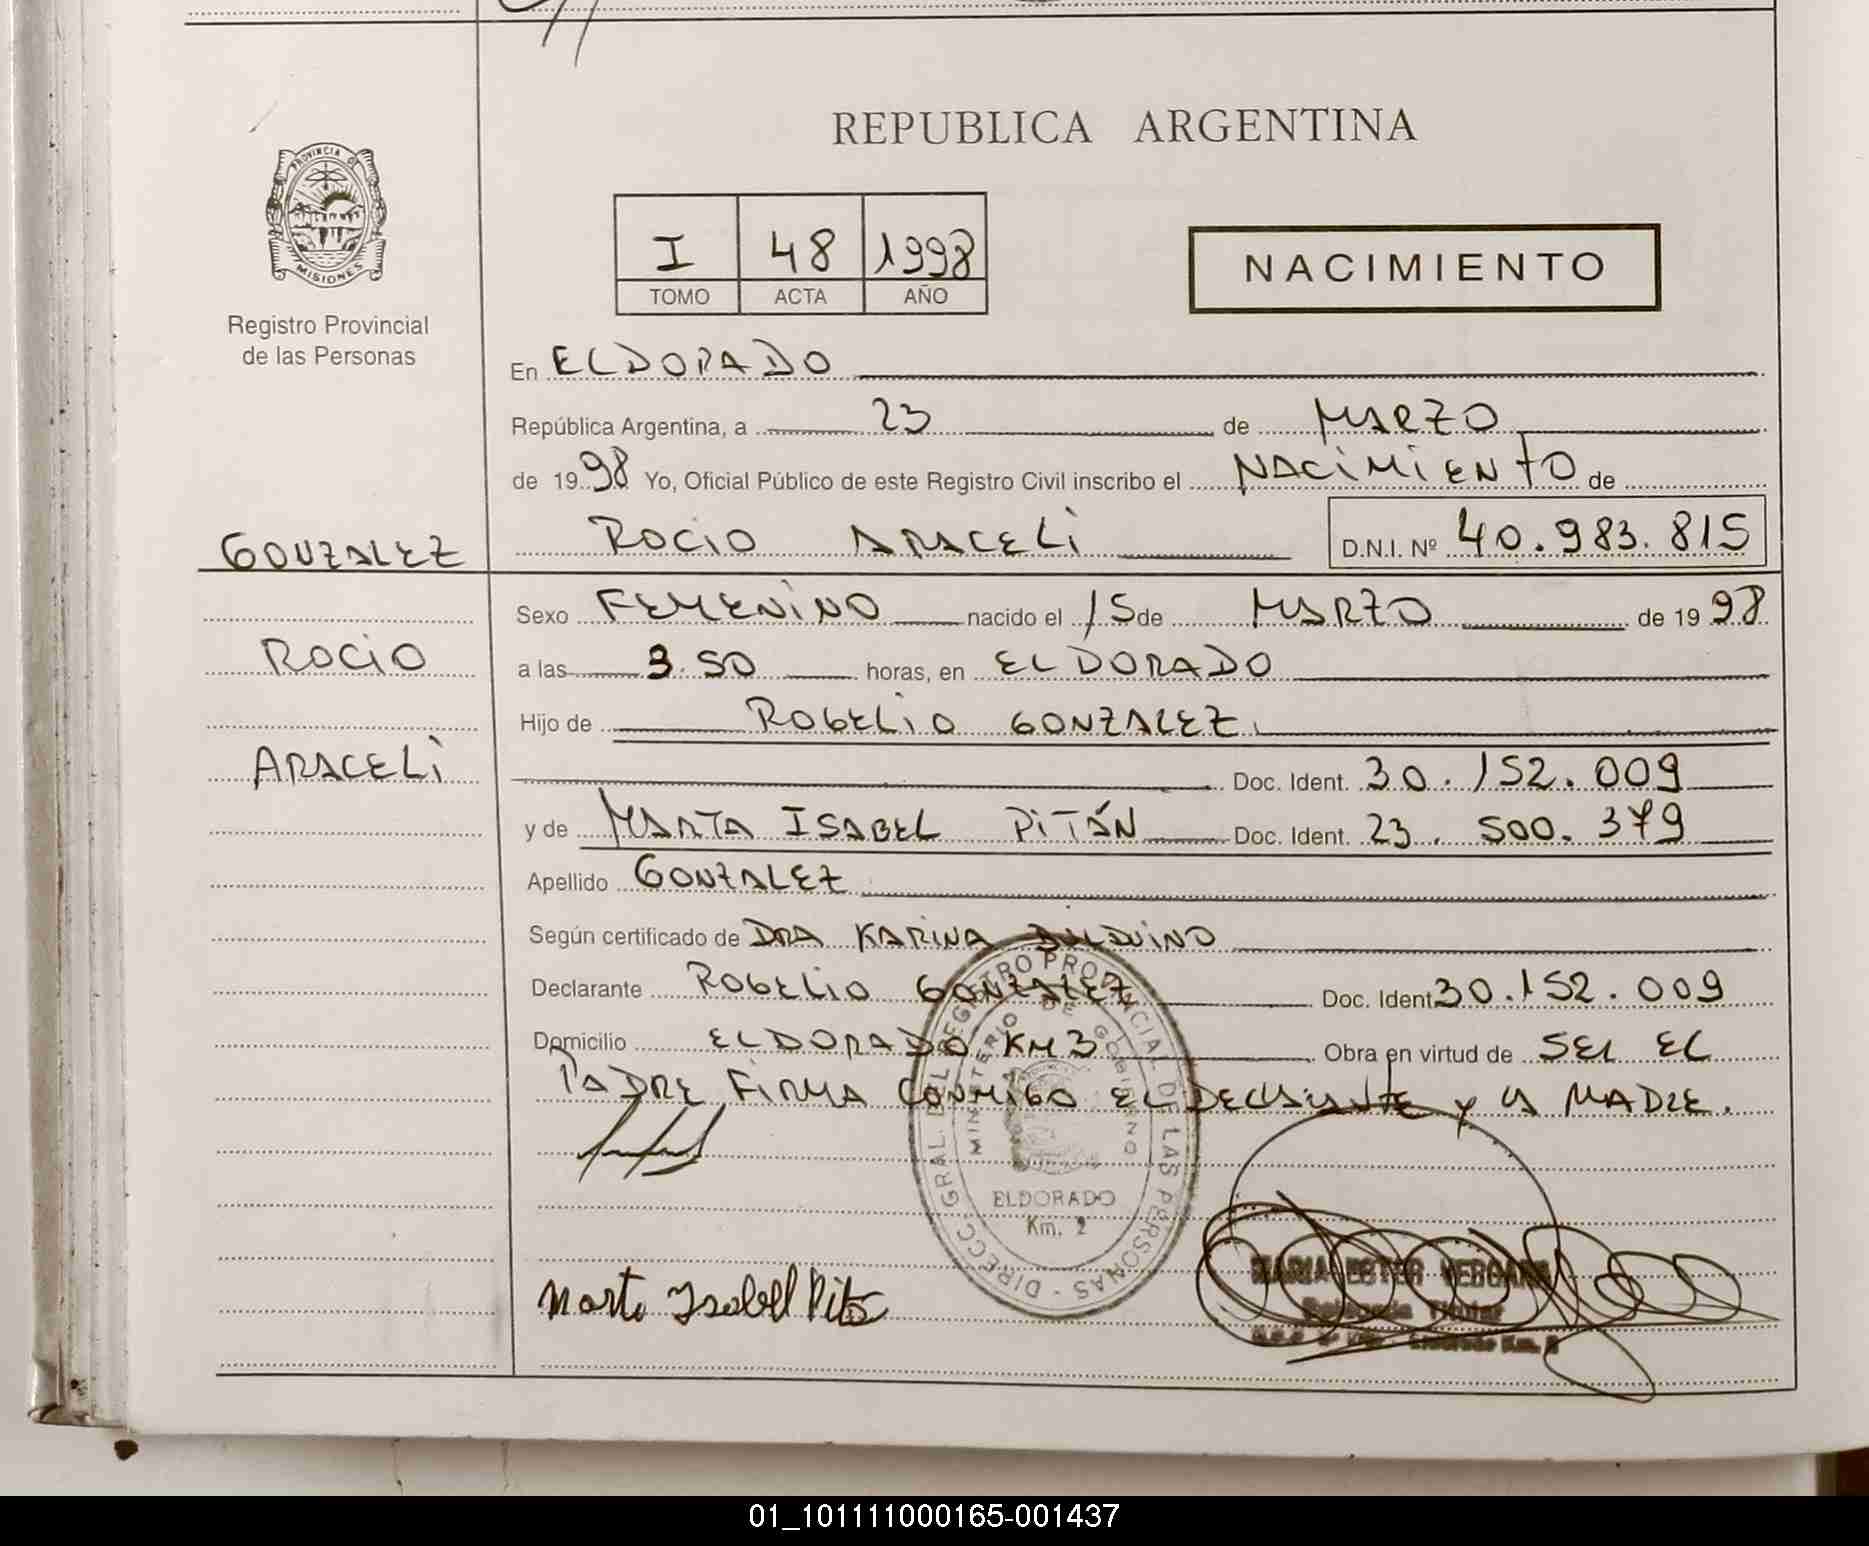 REPUBLICA ARGENTINA
PROVINCIA DE
MISIONES
Registro Provincial
de las Personas
I 48 1998
TOMO ACTA AÑO
NACIMIENTO
En ELDORADO
República Argentina, a 23 de MARZO
de 1998 Yo, Oficial Público de este Registro Civil inscribo el NACIMIENTO de
GONZALEZ ROCIO ARACELI D.N.I. Nº 40.983.815
Sexo FEMENINO nacido el 15 de MARZO de 1998
ROCIO a las 3.50 horas, en ELDORADO
Hijo de ROGELIO GONZALEZ
ARACELI Doc. Ident. 30.152.009
y de MARTA ISABEL PITÁN Doc. Ident. 23.500.379
Apellido GONZALEZ
Según certificado de DRA KARINA
Declarante ROGELIO GONZALEZ Doc. Ident 30.152.009
Domicilio ELDORADO KM 3 Obra en virtud de SER EL
PADRE FIRMA CONMIGO EL DECLARANTE Y LA MADRE.
DIRECC. GRAL. DEL REGISTRO PROVINCIAL DE LAS PERSONAS
MINISTERIO DE GOBIERNO
ELDORADO
Km. 2
MARIA ESTER
Titular
Marta Isabel Pita
01_101111000165-001437